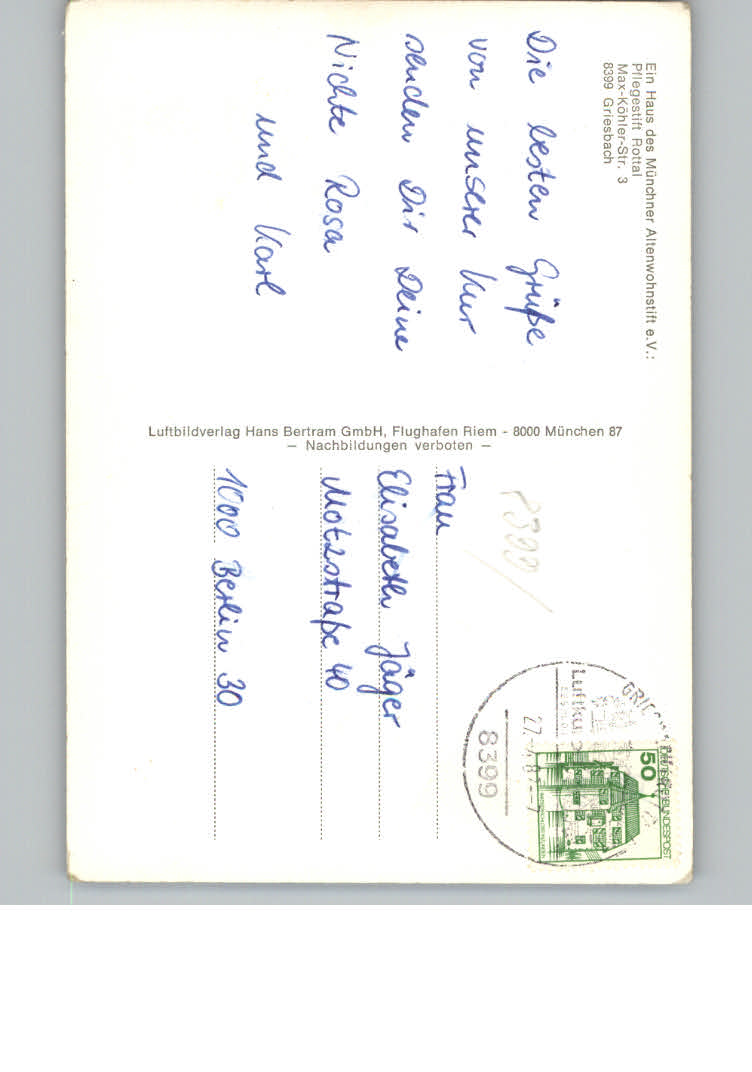 Ein Haus des Münchner Altenwohnstift e.V.:
Pflegestift Rottal
Max-Köhler-Str. 3
8399 Griesbach
Die besten Grüße
von unserer Kur
senden Dir Deine
Nichte Rosa
und Karl
Luftbildverlag Hans Bertram GmbH, Flughafen Riem - 8000 München 87
— Nachbildungen verboten —
Frau
Elisabeth Jäger
Motzstraße 40
1000 Berlin 30
8399
50
DEUTSCHE BUNDESPOST